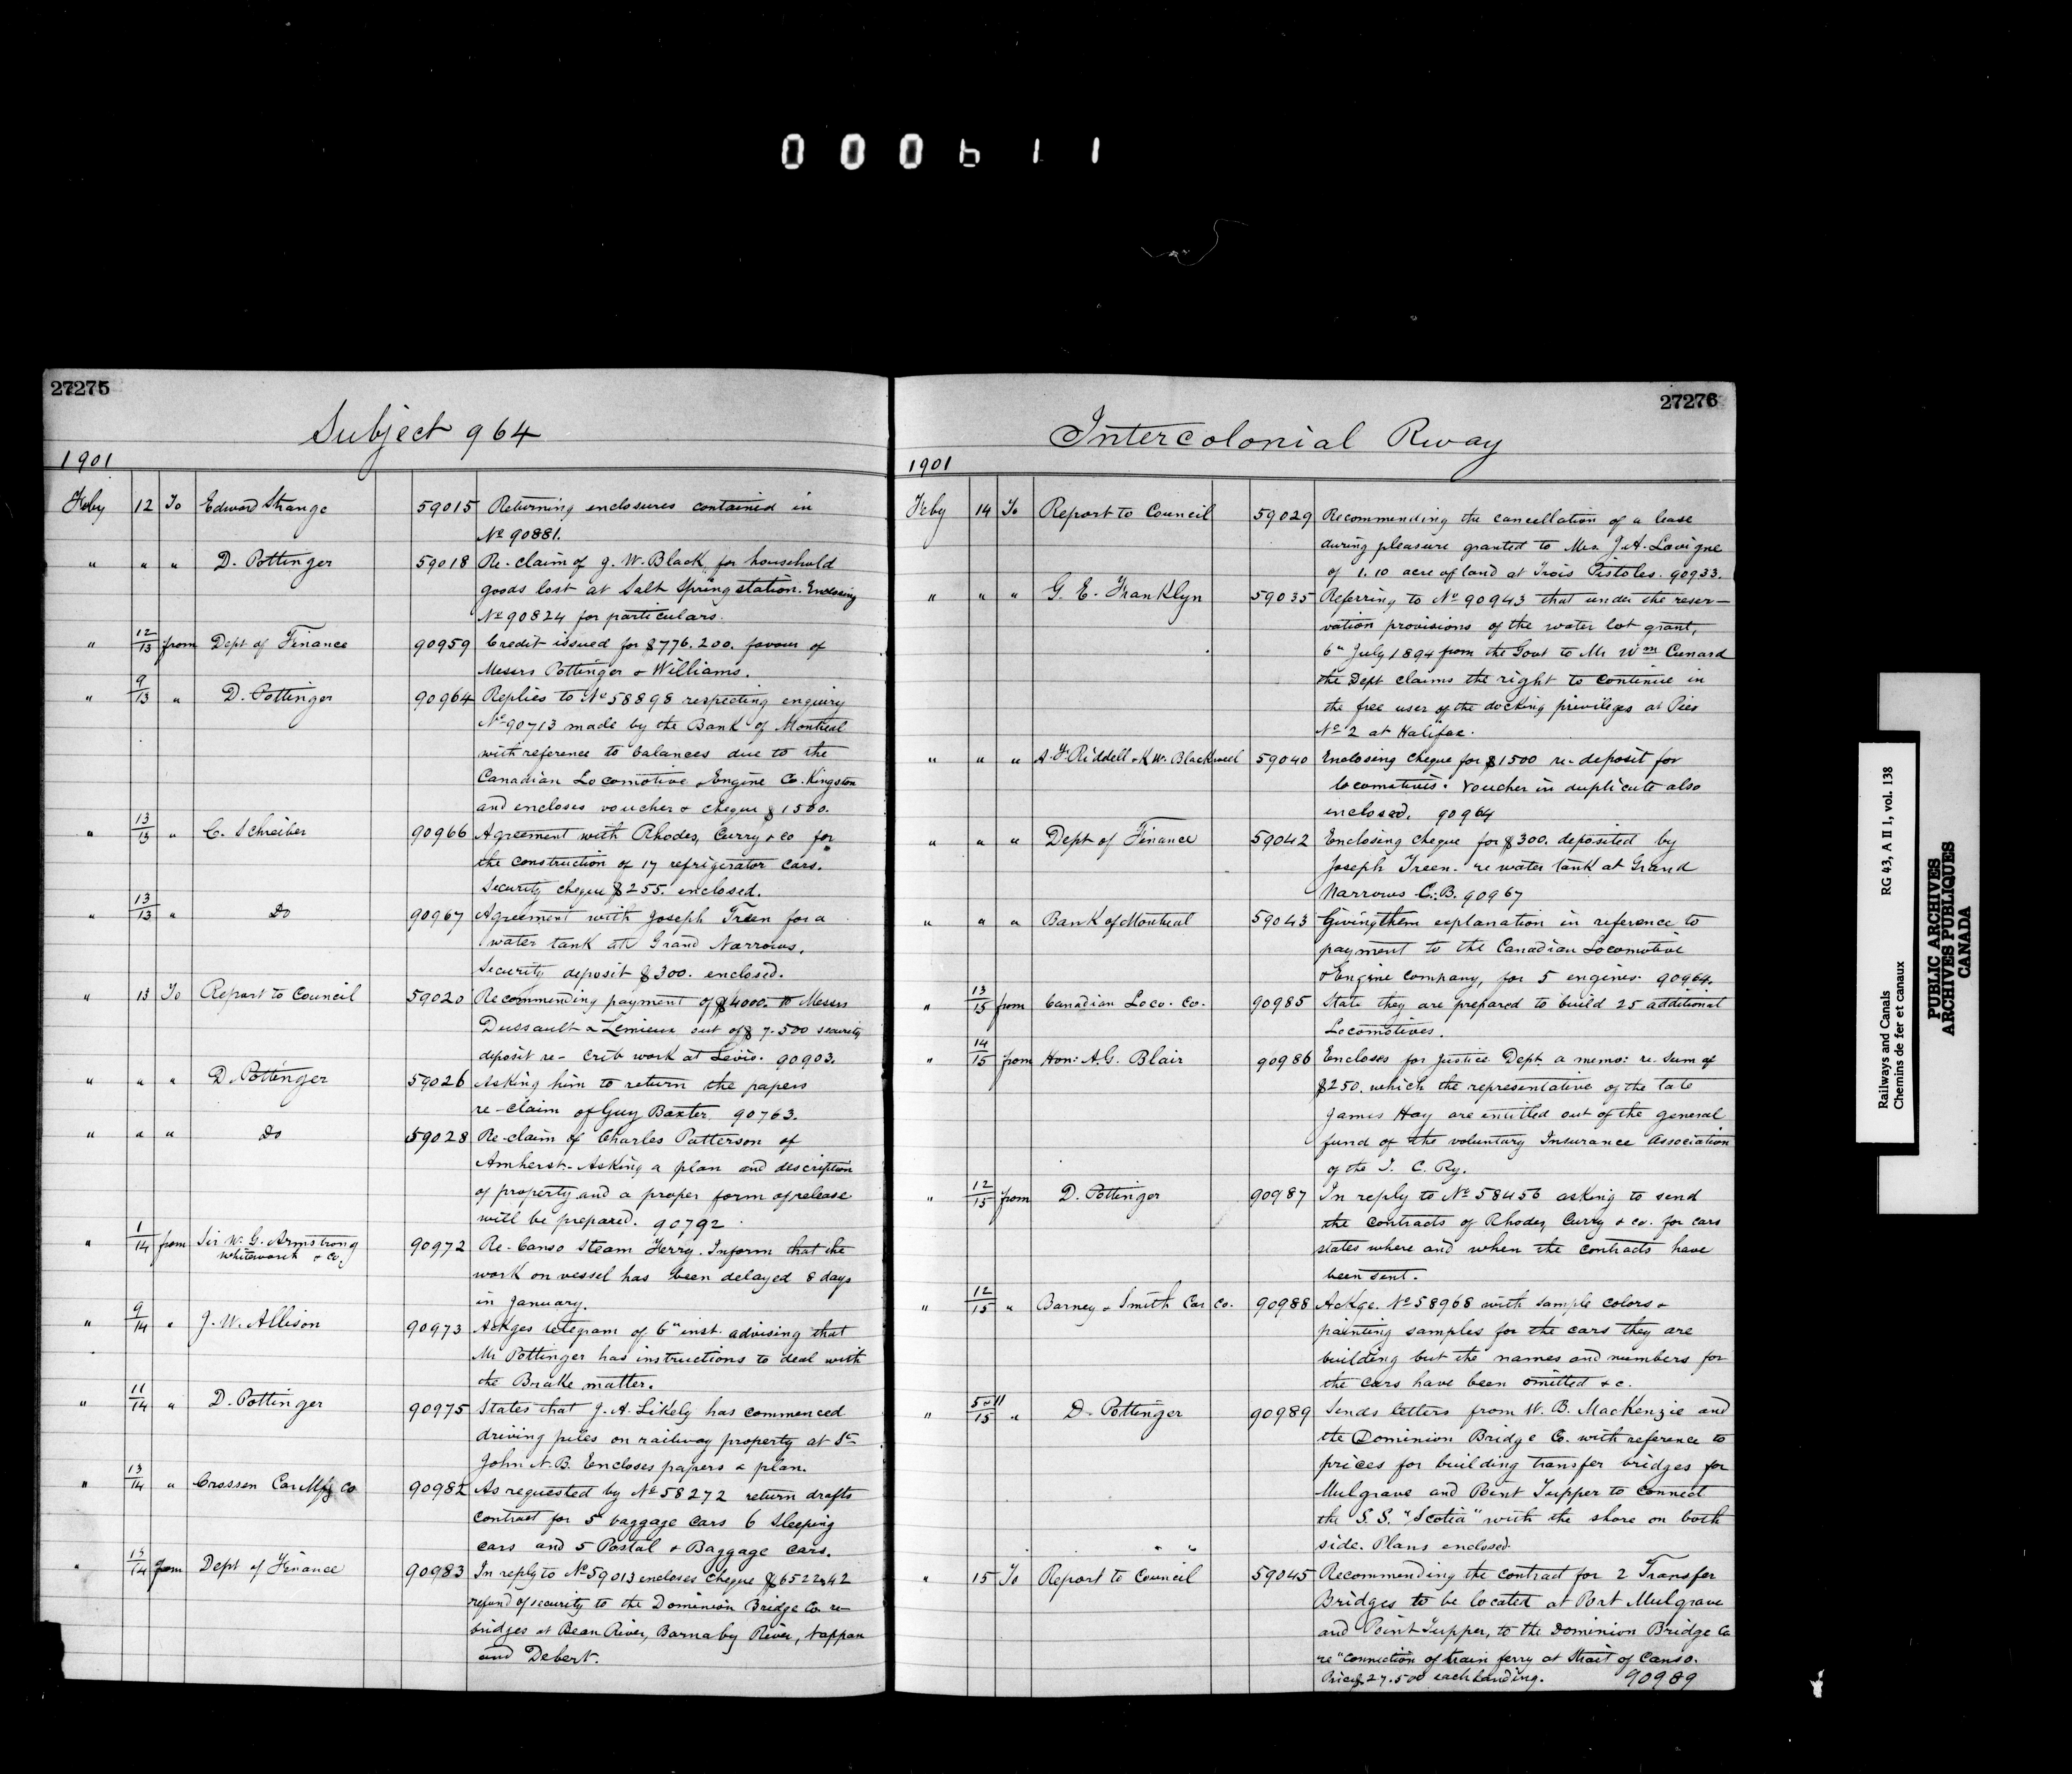 000611
27275
Subject 964
1901
Feby 12 To Edward Strange 59015 Returning enclosures contained in
No 90881.
" " " D. Pottinger 59018 Re-claim of G. W. Black, for household
goods lost at Salt Spring station. Enclosing
No 90824 for particulars.
" 12/13 from Dept of Finance 90959 Credit issued for $776.200. favour of
Messrs Pottinger & Williams.
" 9/13 " D. Pottinger 90964 Replies to No 58898 respecting enquiry
No 90713 made by the Bank of Montreal
with reference to balances due to the
Canadian Locomotive & Engine Co. Kingston
and encloses voucher & cheque $1500.
" 13/13 " C. Schreiber 90966 Agreement with Rhodes, Curry & co for
the construction of 17 refrigerator cars.
Security cheque $255. enclosed.
" 13/13 " Do 90967 Agreement with Joseph Treen for a
water tank at Grand Narrows.
Security deposit $300. enclosed.
" 13 To Report to Council 59020 Recommending payment of $4000. to Messrs
Dussault & Lemieux out of $7.500 security
deposit re- crib work at Levis. 90903.
" " " D. Pottinger 59026 Asking him to return the papers
re-claim of Guy Baxter 90763.
" " " Do 59028 Re-claim of Charles Patterson of
Amherst- Asking a plan and description
of property and a proper form of release
will be prepared. 90792
" 1/14 from Sir W. G. Armstrong
Whitworth & Co. 90972 Re- Canso Steam Ferry. Inform that the
work on vessel has been delayed 8 days
in January.
" 9/14 " J. W. Allison 90973 Ackges telegram of 6" inst. advising that
Mr Pottinger has instructions to deal with
the Brake matter.
" 11/14 " D. Pottinger 90975 States that J. A. Likely has commenced
driving piles on railway property at St
John N.B. Encloses papers & plan.
" 13/14 " Crossen Car Mfg Co 90982 As requested by No 58272 return drafts
contract for 5 baggage cars 6 Sleeping
cars and 5 Postal & Baggage cars.
" 13/14 from Dept of Finance 90983 In reply to No 59013 encloses cheque $6522.42
refund of security to the Dominion Bridge Co. re-
bridges at Bean River, Barnaby River, Nappan
and Debert.
27276
Intercolonial Rway
1901
Feby 14 To Report to Council 59029 Recommending the cancellation of a lease
during pleasure granted to Mrs. J. A. Lavigne
of 1.10 acre of land at Trois Pistoles. 90933.
" " " G. E. Franklyn 59035 Referring to No 90943 that under the reser-
vation provisions of the water lot grant,
6" July 1894 from the Govt to Mr Wm Cunard
the Dept claims the right to continue in
the free user of the docking privileges at Pier
No 2 at Halifax.
" " " A. F. Riddell & K. W. Blackwell 59040 Enclosing cheque for $1500 re-deposit for
locomotives. Voucher in duplicate also
enclosed. 90964
" " " Dept of Finance 59042 Enclosing cheque for $300. deposited by
Joseph Treen. re water tank at Grand
Narrows C.B. 90967
" " " Bank of Montreal 59043 Giving them explanation in reference to
payment to the Canadian Locomotive
& Engine Company, for 5 engines. 90964.
" 13/15 from Canadian Loco. Co. 90985 State they are prepared to build 25 additional
Locomotives.
" 14/15 from Hon: A. G. Blair 90986 Encloses for Justice Dept. a memo: re- sum of
$250. which the representative of the late
James Hay are entitled out of the general
fund of the voluntary Insurance Association
of the I. C. Ry.
" 12/15 from D. Pottinger 90987 In reply to No 58456 asking to send
the contracts of Rhodes, Curry & co. for cars
states where and when the contracts have
been sent.
" 12/15 " Barney & Smith Car Co. 90988 Ackge. No 58968 with sample colors &
painting samples for the cars they are
building but the names and numbers for
the cars have been omitted &c.
" 5&11/15 " D. Pottinger 90989 Sends letters from W. B. MacKenzie and
the Dominion Bridge Co. with reference to
prices for building transfer bridges for
Mulgrave and Point Tupper to connect
the S.S. "Scotia" with the shore on both
side. Plans enclosed.
" 15 To Report to Council 59045 Recommending the contract for 2 Transfer
Bridges to be located at Port Mulgrave
and Point Tupper, to the Dominion Bridge Co
re "connection of train ferry at Strait of Canso.
Price $27.500 each landing. 90989
Railways and Canals RG 43, A II 1, vol. 138
Chemins de fer et canaux
PUBLIC ARCHIVES
ARCHIVES PUBLIQUES
CANADA